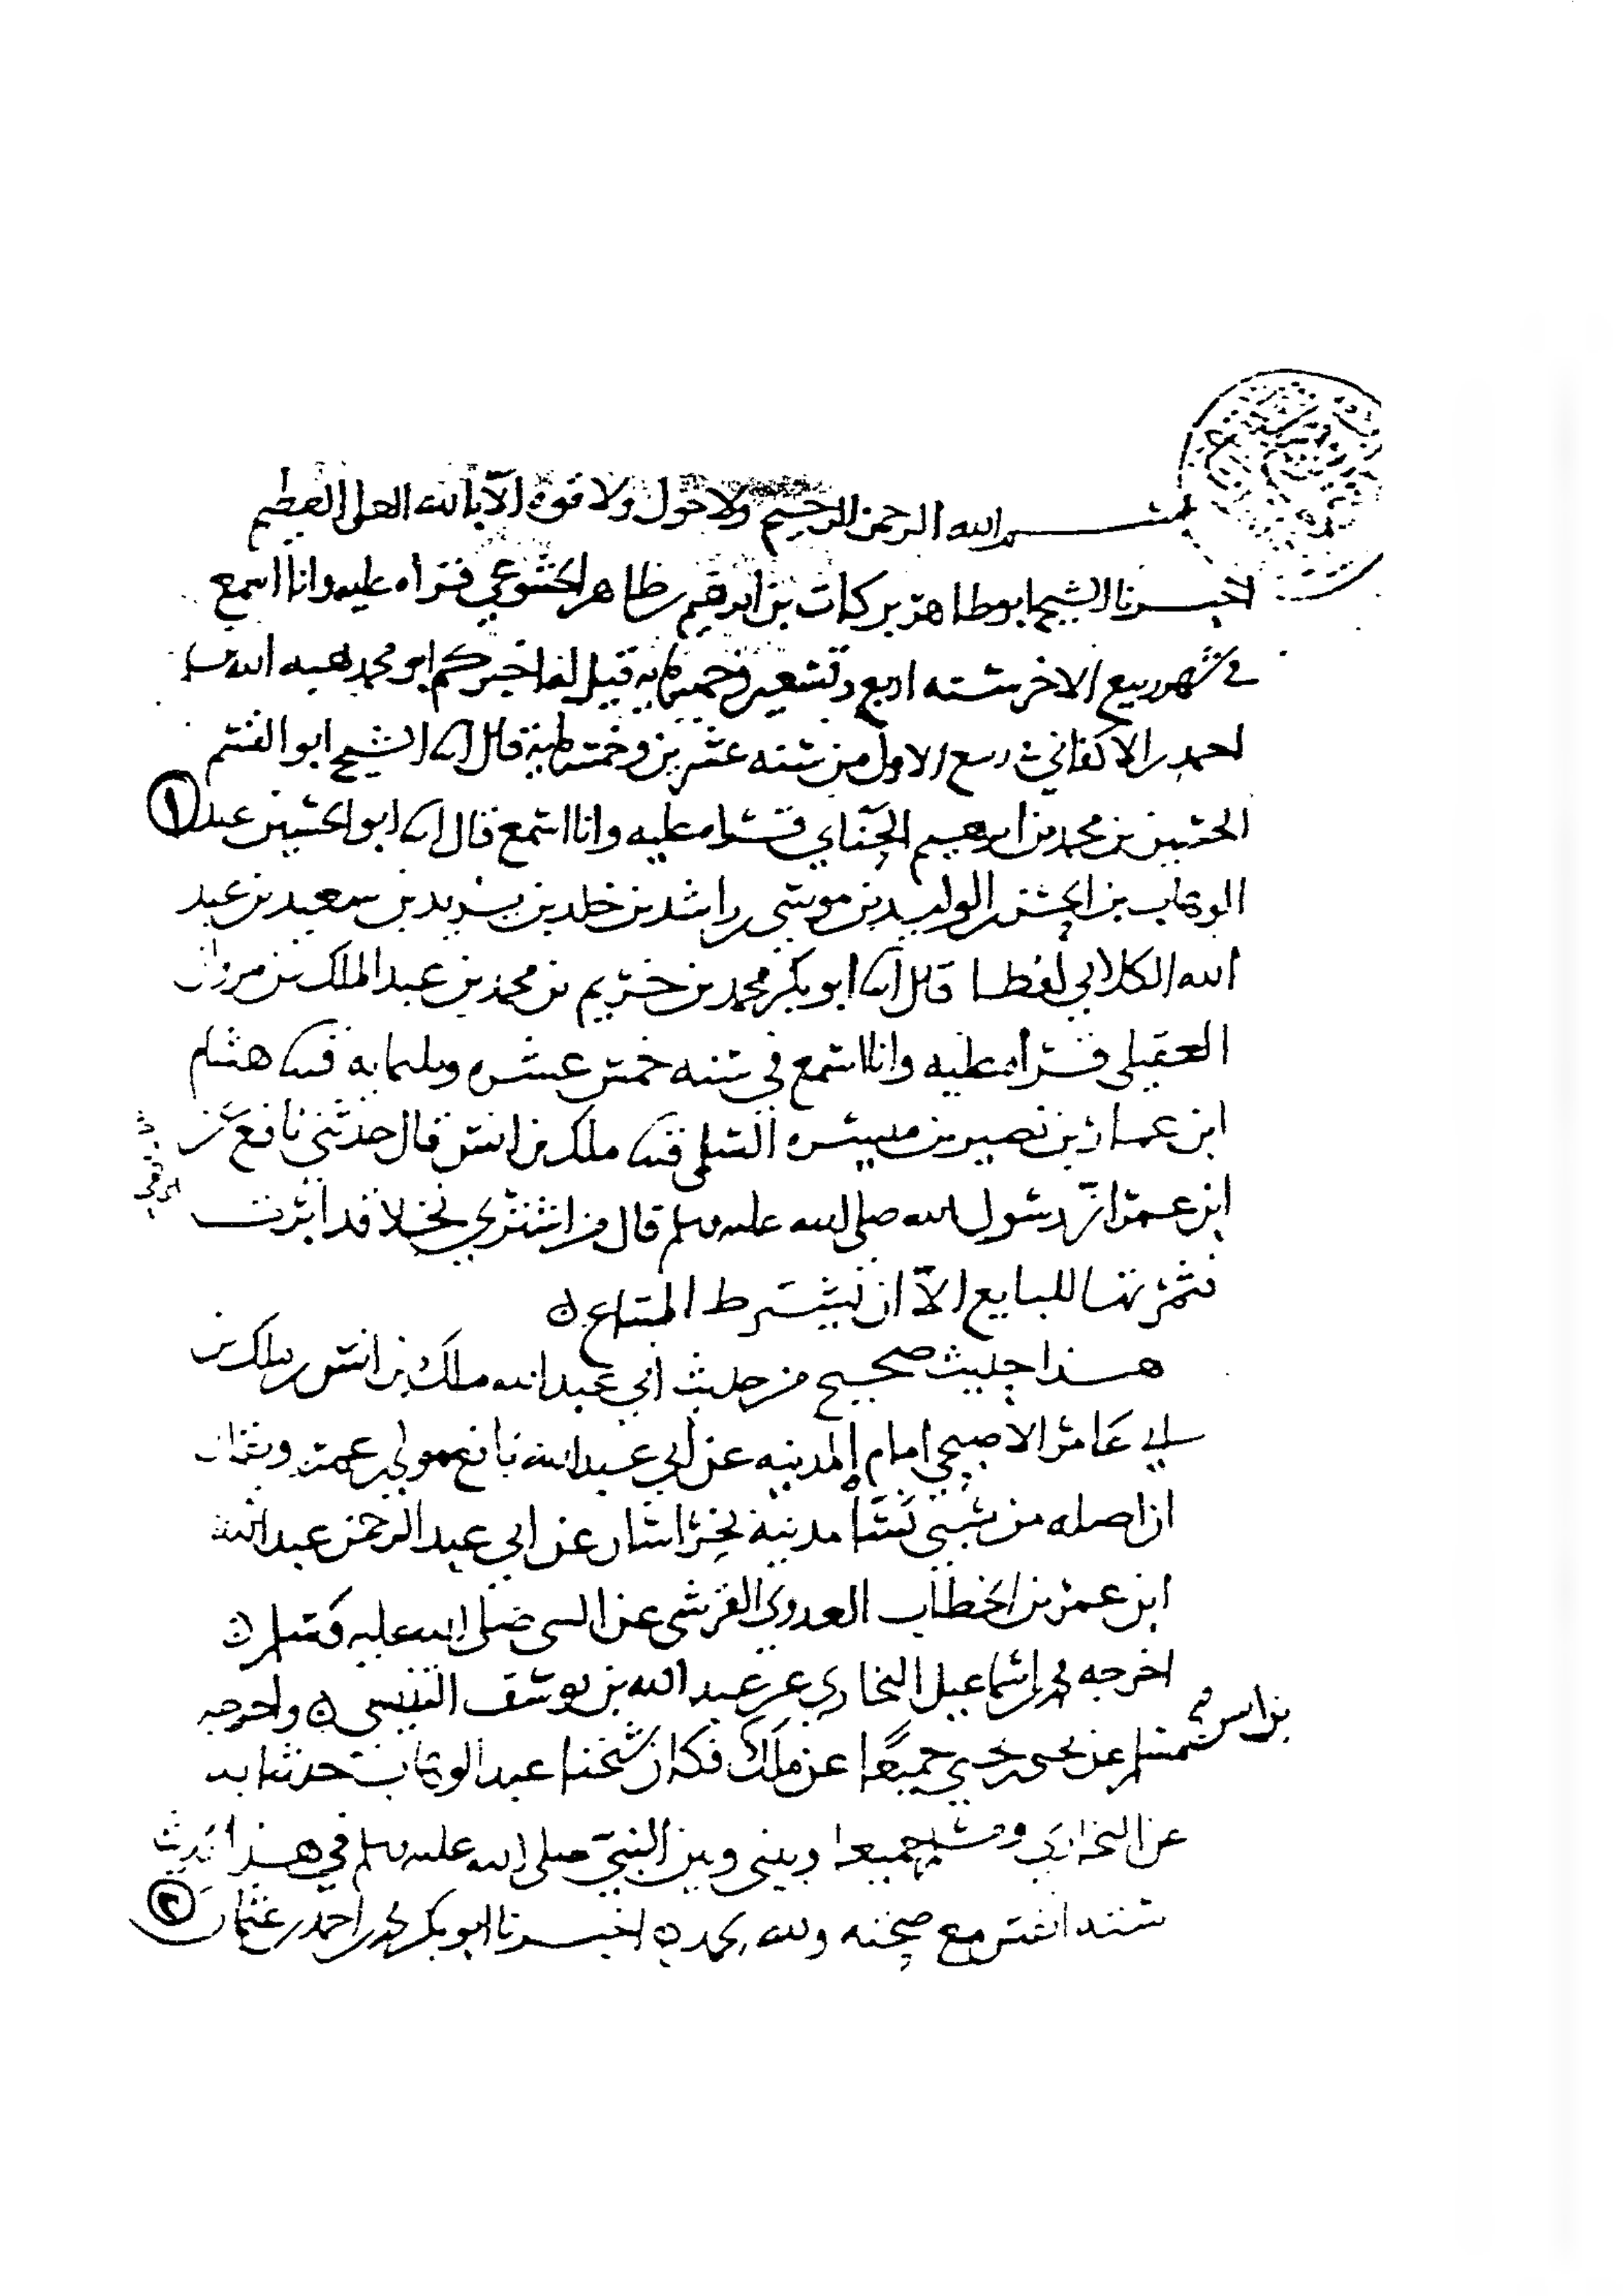 بسم الله الرحمن الرحيم ولا حول ولا قوة الا بالله العلي العظيم
اخبرنا الشيخ ابو طاهر بركات بن ابرهيم بن طاهر الخشوعي قراه عليه وانا اسمع
في شهر ربيع الاخر سنه اربع وتسعين وخمس مايه قيل له اخبركم ابو محمد هبه الله بن
احمد بن الاكفاني في ربيع الاول من سنه عشرين وخمسمايه قال انا الشيخ ابو القسم
الحسين بن محمد بن ابرهيم الحنّاي قراه عليه وانا اسمع قال انا ابو الحسين عبد ١
الوهاب بن الحسن بن الوليد بن موسى بن راشد بن خلد بن يزيد بن سعيد بن عبد
الله الكلابي لفظا قال انا ابو بكر محمد بن خريم بن محمد بن عبد الملك بن مروان
العقيلي قراه عليه وانا اسمع في سنه خمس عشره وثلثمايه قثنا هشام
ابن عمار بن نصير بن ميسره السلمي قثنا ملك بن انس قال حدثني نافع عن
ابن عمر ان رسول الله صلى الله عليه وسلم قال من اشترى نخلا قد ابرت
فثمرتها للبايع الا ان يشترط المبتاع ه
هذا حديث صحيح من حديث ابي عبد الله ملك بن انس بن ملك بن
ابي عامر الاصبحي امام المدينه عن ابي عبد الله نافع مولى بن عمر ويقال
ان اصله من سبي نسا مدينة بخراسان عن ابي عبد الرحمن عبد الله
ابن عمر بن الخطاب العدوي القرشي عن النبي صلى الله عليه وسلم ه
اخرجه محمد بن اسماعيل البخاري عن عبد الله بن يوسف التنيسي ه واخرجه
مسلم عن يحيى بن يحيى جميعًا عن ملك فكان شيخنا عبد الوهاب حدثنا به
عن البخاري ومسلم جميعا وبيني وبين النبي صلى الله عليه وسلم في هذا الحديث
ستة انفس مع صحته ولله الحمد ه اخبرنا ابو بكر محمد بن احمد بن عثمان ٢